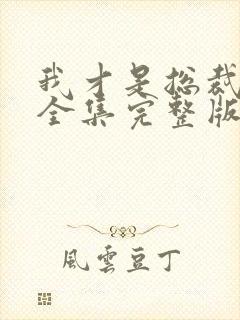 我才是总裁
全集完整版
風雲豆丁